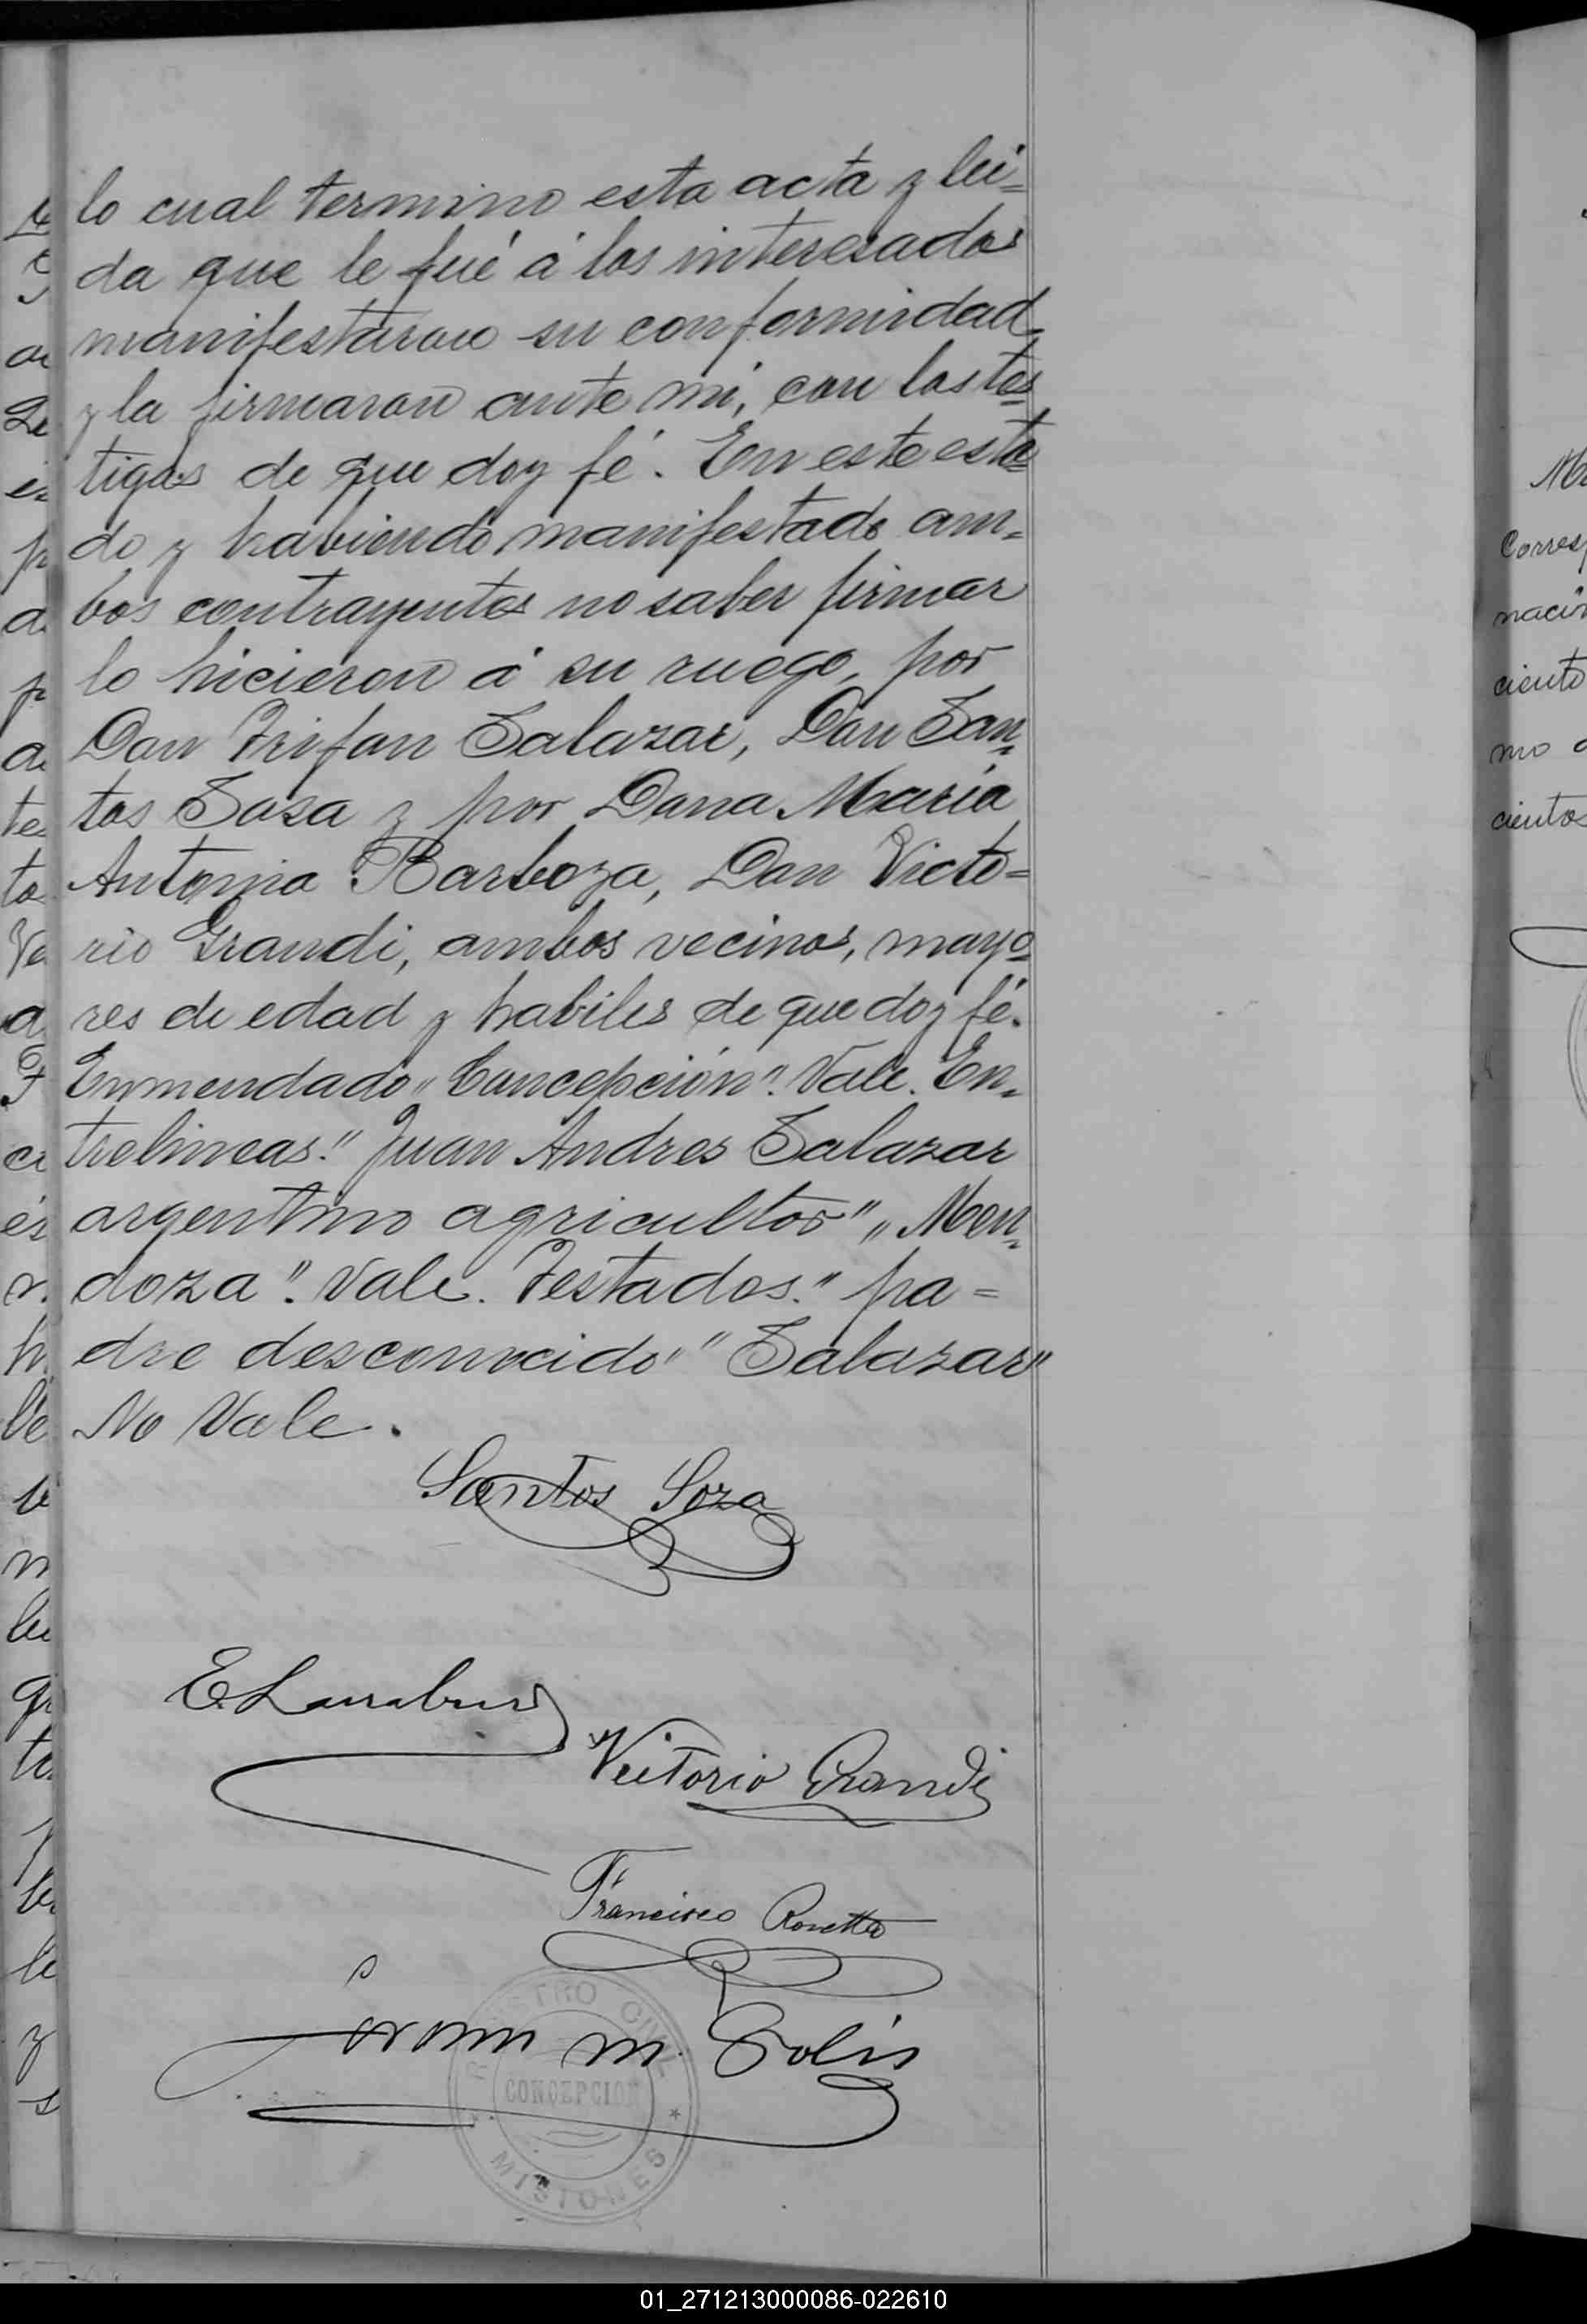 lo cual termino esta acta y lei=
da que le fué á los interesados
manifestaron su conformidad
y la firmaron ante mi, con los tes
tigos de que doy fé. En este esta
do y habiendo manifestado am=
bos contrayentes no saber firmar
lo hicieron á su ruego, por
Don Trifon Salazar, Don San=
tos Sosa y por Dona Maria
Antonia Barboza, Don Victo=
rio Grandi, ambos vecinos, mayo
res de edad y habiles de que doy fé.
Enmendado "Concepción". Vale. En=
trelineas." Juan Andres Salazar
argentino agricultor" "Men=
doza". Vale. Testados." pa=
dre desconocido" "Salazar"
No Vale.
Santos Soza
Vittorio Grandi
Francisco
M. Solis
REGISTRO CIVIL
CONCEPCION
MISIONES
Corres
nación
ciento
mo
cientos
01_271213000086-022610